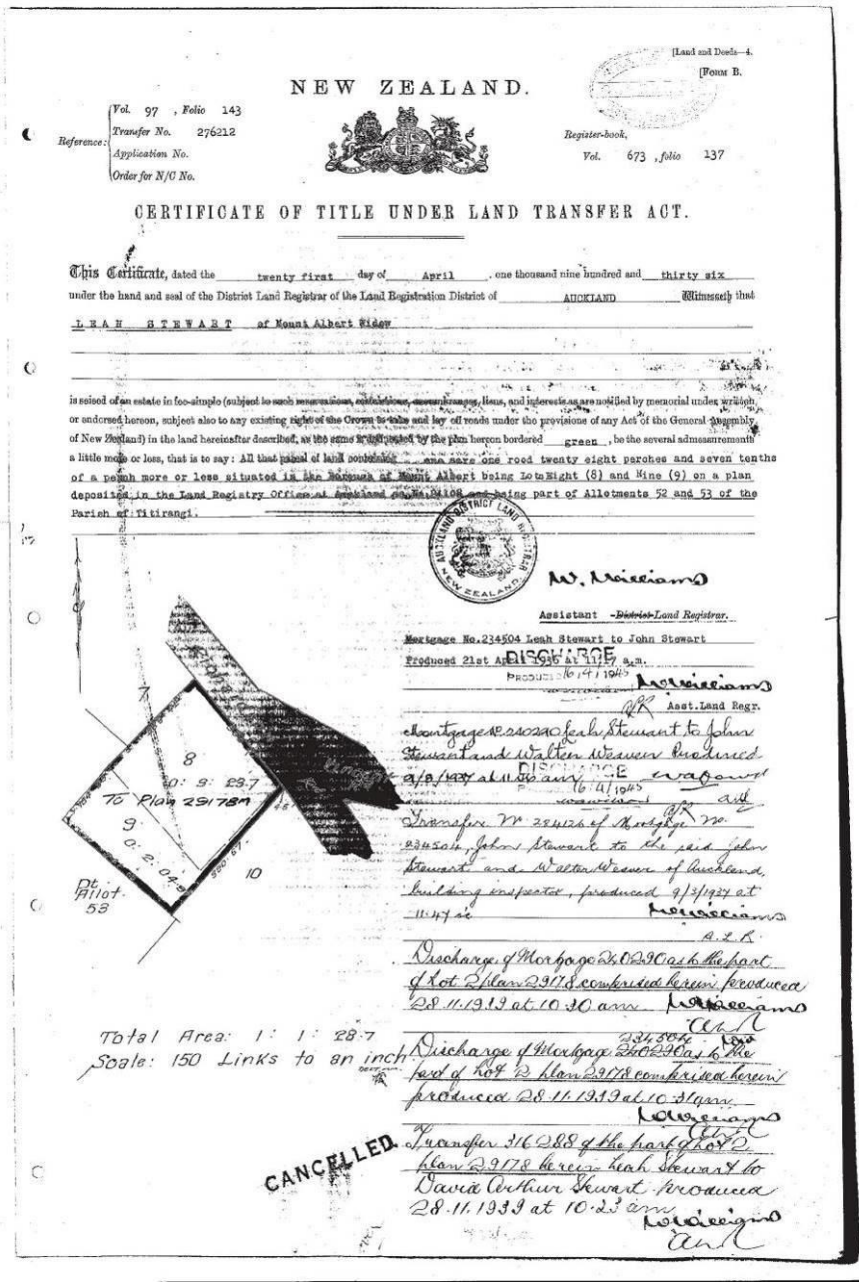 [Land and Deeds—4.
[FORM B.
NEW ZEALAND.
Reference:
Vol. 97 , Folio 143
Transfer No. 276212
Application No.
Order for N/C No.
Register-book,
Vol. 673 , folio 137
CERTIFICATE OF TITLE UNDER LAND TRANSFER ACT.
This Certificate, dated the twenty first day of April , one thousand nine hundred and thirty six
under the hand and seal of the District Land Registrar of the Land Registration District of AUCKLAND Witnesseth that
LEAH STEWART of Mount Albert Widow
is seised of an estate in fee-simple (subject to such reservations, restrictions, encumbrances, liens, and interests as are notified by memorial under written
or endorsed hereon, subject also to any existing right of the Crown to take and lay off roads under the provisions of any Act of the General Assembly
of New Zealand) in the land hereinafter described, as the same is delineated by the plan hereon bordered green , be the several admeasurements
a little more or less, that is to say: All that parcel of land containing one acre one rood twenty eight perches and seven tenths
of a perch more or less situated in the Borough of Mount Albert being Lots Eight (8) and Nine (9) on a plan
deposited in the Land Registry Office at Auckland as No. and being part of Allotments 52 and 53 of the
Parish of Titirangi.
AUCKLAND DISTRICT LAND REGISTRAR
NEW ZEALAND.
Assistant District Land Registrar.
Mortgage No.234504 Leah Stewart to John Stewart
Produced 21st April 1936 at 11.17 a.m.
DISCHARGE
PRODUCED 16/4/1945
Asst.Land Regr.
Mortgage No. 240290 Leah Stewart to John
Stewart and Walter Weaver Produced
9/3/1937 at 11. am
DISCHARGE
16/4/1945
Transfer No. 284126 of Mortgage No.
234504, John Stewart to the said John
Stewart and Walter Weaver of Auckland,
building inspector, produced 9/3/1937 at
11.47
A.L.R.
Discharge of Mortgage 240290 as to the part
of Lot 2 plan 29178 comprised herein produced
28.11.1939 at 10.30 am
ALR
Discharge of Mortgage 234504 240290 as to the
part of Lot 2 plan 29178 comprised herein
produced 28.11.1939 at 10.31 am
ALR
Transfer 316288 of the part of Lot 2
plan 29178 herein Leah Stewart to
David Arthur Stewart produced
28.11.1939 at 10.23 am
ALR
7
8
0: 3: 23.7
To Plan 29178
9
0: 2: 04.8
10
Pt.
Allot.
53
Total Area: 1: 1: 28.7
Scale: 150 Links to an inch
CANCELLED.